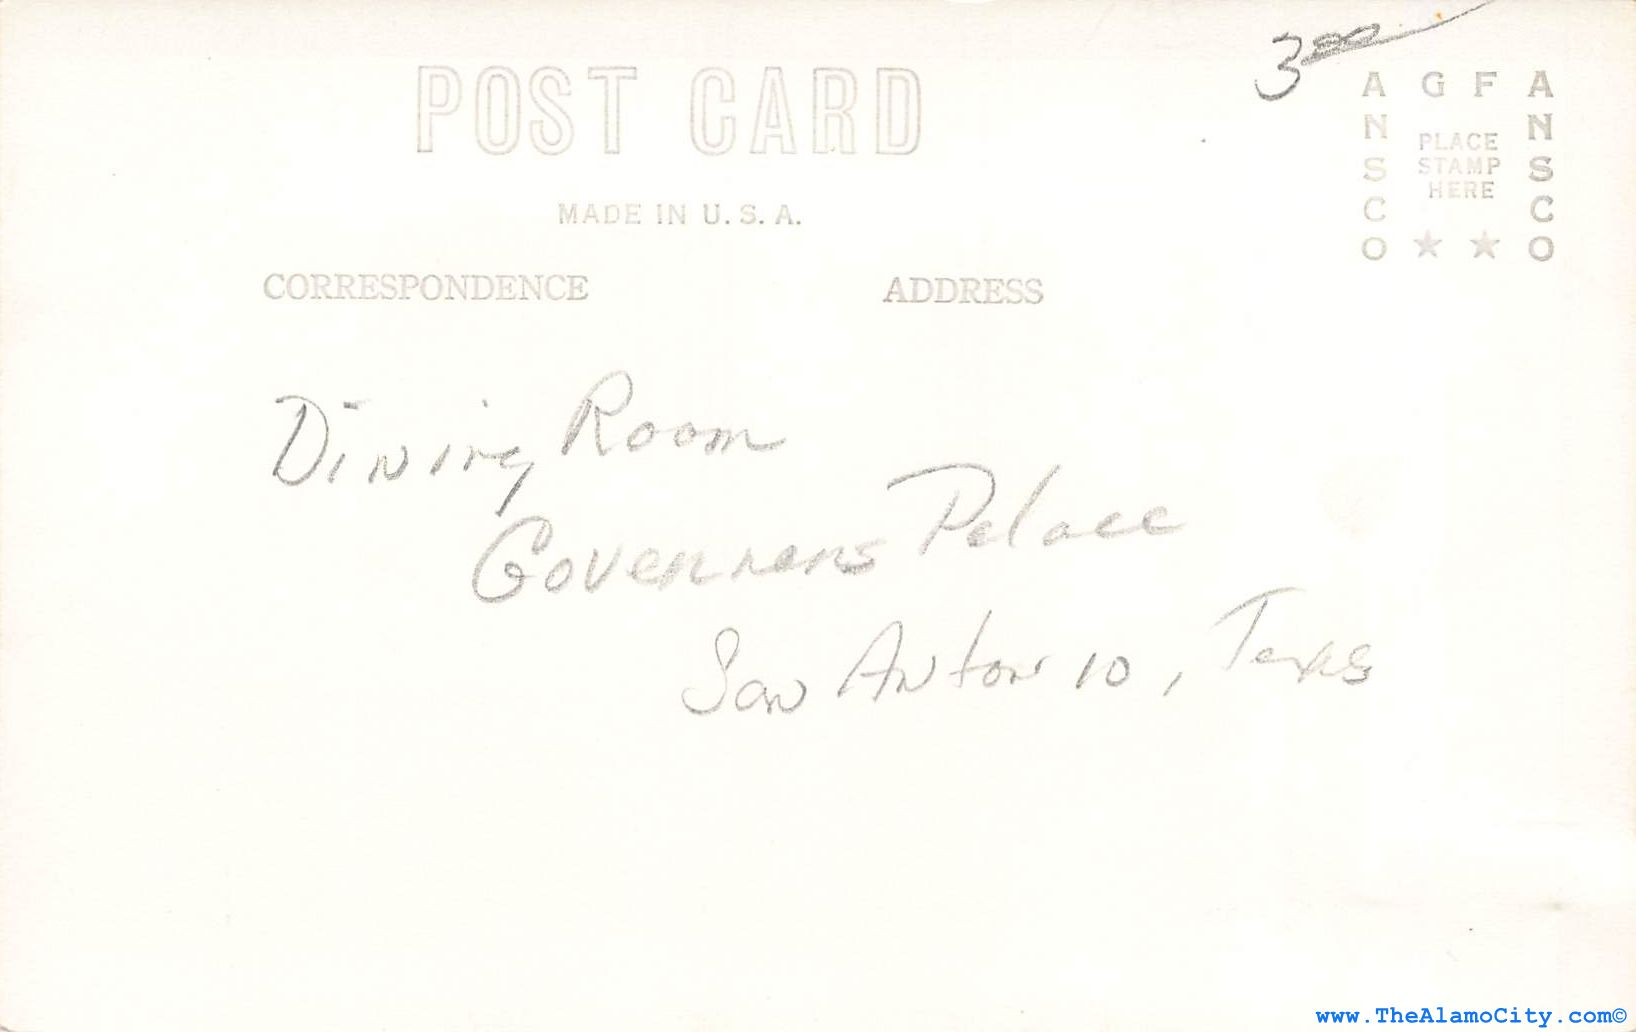 3 00
POST CARD
MADE IN U.S.A.
CORRESPONDENCE
ADDRESS
AGFA
ANSCO
ANSCO
PLACE
STAMP
HERE
Dining Room
Governors Palace
San Antonio, Texas
www.TheAlamoCity.com©